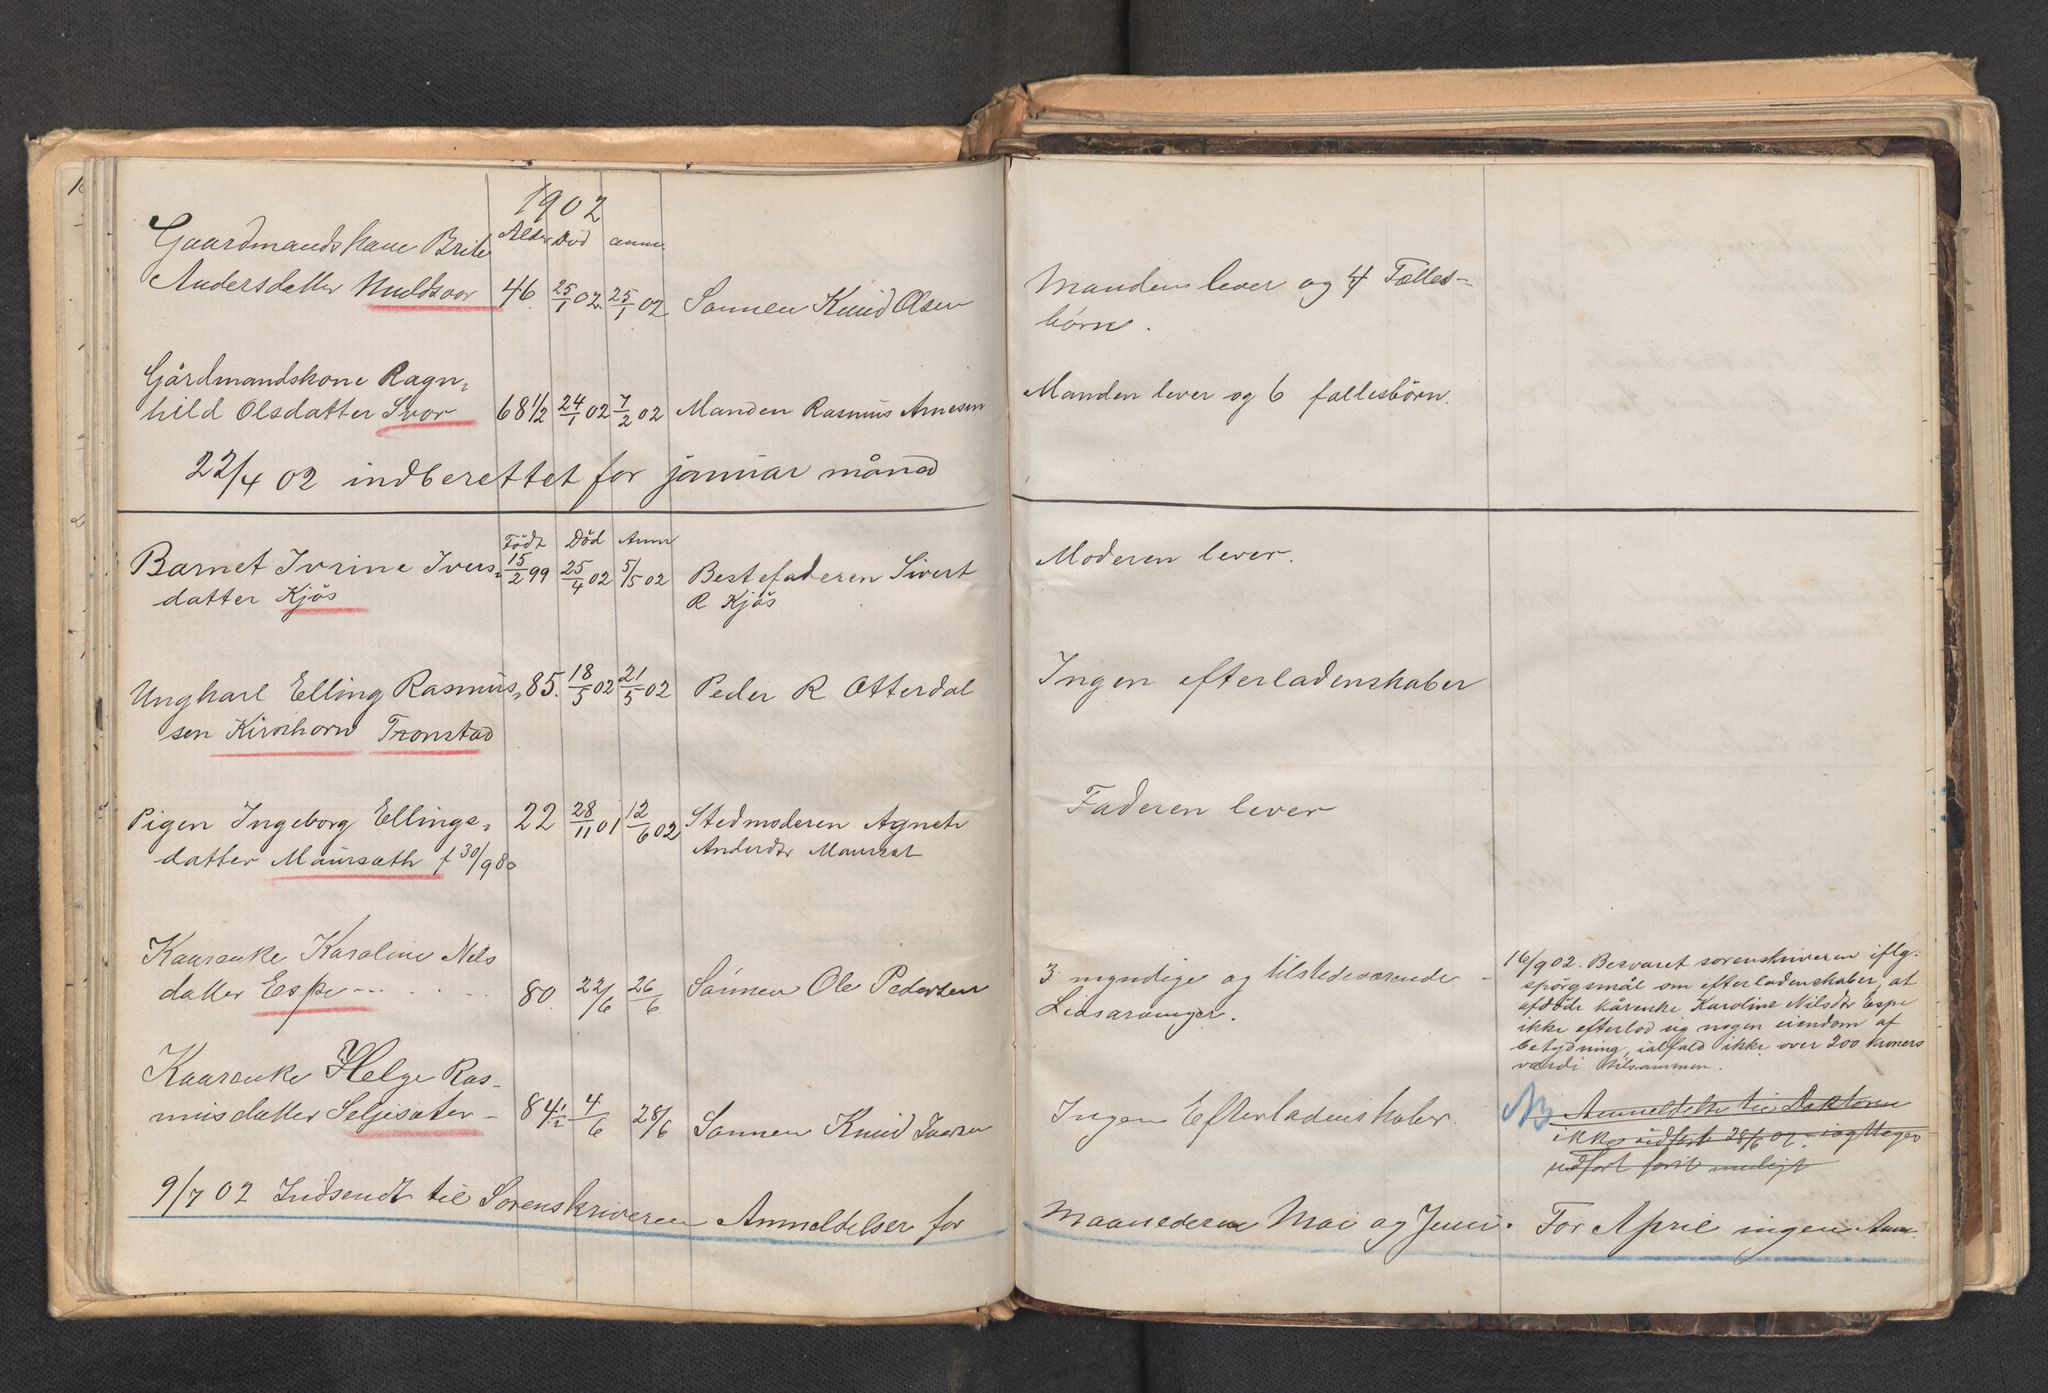 1902
Alder Död anm.
Gaardmandskone Brite
Andersdatter Muldsvor 46. 25/1 02. 25/1 02 Sønnen Knud Olsen
Manden lever og 4 Fælles-
børn.
Gårdmandskone Ragn-
hild Olsdatter Svor 68 1/2 24/1 02 7/2 02 Manden Rasmus Arnesen
Manden lever og 6 fællesbörn.
22/4 02 indberettet for januar måned
Födt Död Anm
Barnet Ivrine Ivers- 15/2 99 25/4 02 5/5 02 Bestefaderen Sivert
datter Kjös R Kjös
Moderen lever.
Ungkarl Elling Rasmus- 85. 18/5 02 21/5 02 Peder R Otterdal
sen Kirchorn Tronstad
Ingen efterladenskaber
Pigen Ingeborg Ellings- 22 28/11 01 12/6 02 Stedmoderen Agnete
datter Maursæth f 30/9 80 Andersdtr Maurset
Faderen lever
Kaarenke Karoline Nels
datter Espe 80. 22/6 26/6 Sönnen Ole Pedersen
3 myndige og tilstedeværende
Livsarvinger.
16/9 02. Besvaret sorenskriveren iflg.
spörgsmål om efterladenskaber, at
afdöde kårenke Karoline Nilsdtr Espe
ikke efterlod sig nogen eiendom af
betydning, ialfald ikke over 200 kroners
værdi tilsammen.
Kaarenke Helge Ras-
musdatter Seljesæter 84 1/2 4/6 28/6 Sønnen Knud Iversen
Ingen Efterladenskaber.
NB Anmeldelse til Doktoren
ikke udført 28/6 02.
udført først muligt
9/7 02 Indsendt til Sorenskriveren Anmeldelser for
Maanederne Mai og Juni. For April ingen Anm.